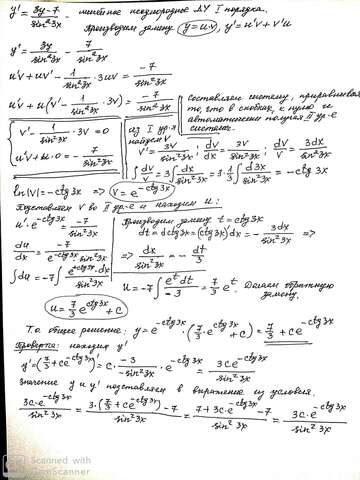 y' = (3y-7)/sin²3x - линейное неоднородное ДУ I порядка.
Производим замену y=u·v, y'=u'v+v'u
y' = 3y/sin²3x - 7/sin²3x
u'v+uv' - 1/sin²3x · 3uv = -7/sin²3x
u'v+u(v' - 1/sin²3x · 3v) = -7/sin²3x
Составляем систему, приравнивая
то, что в скобках, к нулю и
автоматически получая II ур-е
системы.
{ v' - 1/sin²3x · 3v = 0
u'v+u·0 = -7/sin²3x
из I ур-я
найдем v
v' = 3v/sin²3x; dv/dx = 3v/sin²3x; dv/v = 3dx/sin²3x
∫dv/v = 3∫dx/sin²3x = 3·1/3∫d3x/sin²3x = -ctg3x
ln|v| = -ctg3x => v = e^(-ctg3x)
Подставляем v во II ур-е и находим u:
u'·e^(-ctg3x) = -7/sin²3x
du/dx = -7/(e^(-ctg3x)·sin²3x)
∫du = -7∫e^(ctg3x)·dx/sin²3x
u = 7/3 e^(ctg3x) + c
Производим замену t = ctg3x
dt = dctg3x = (ctg3x)'dx = -3dx/sin²3x =>
=> dx/sin²3x = -dt/3
u = -7∫e^t dt/-3 = 7/3 e^t. Делаем обратную
замену.
Т.о. общее решение: y = e^(-ctg3x)·(7/3 e^(ctg3x) + c) = 7/3 + ce^(-ctg3x)
Проверка: находим y'
y' = (7/3 + ce^(-ctg3x))' = c·-3/sin²3x·e^(-ctg3x) = 3ce^(-ctg3x)/sin²3x
Значение y и y' подставляем в выражение из условия.
3c·e^(-ctg3x)/sin²3x = (3·(7/3 + ce^(-ctg3x)) - 7)/sin²3x = (7+3c·e^(-ctg3x) - 7)/sin²3x = 3c·e^(-ctg3x)/sin²3x
CS
Scanned with
CamScanner